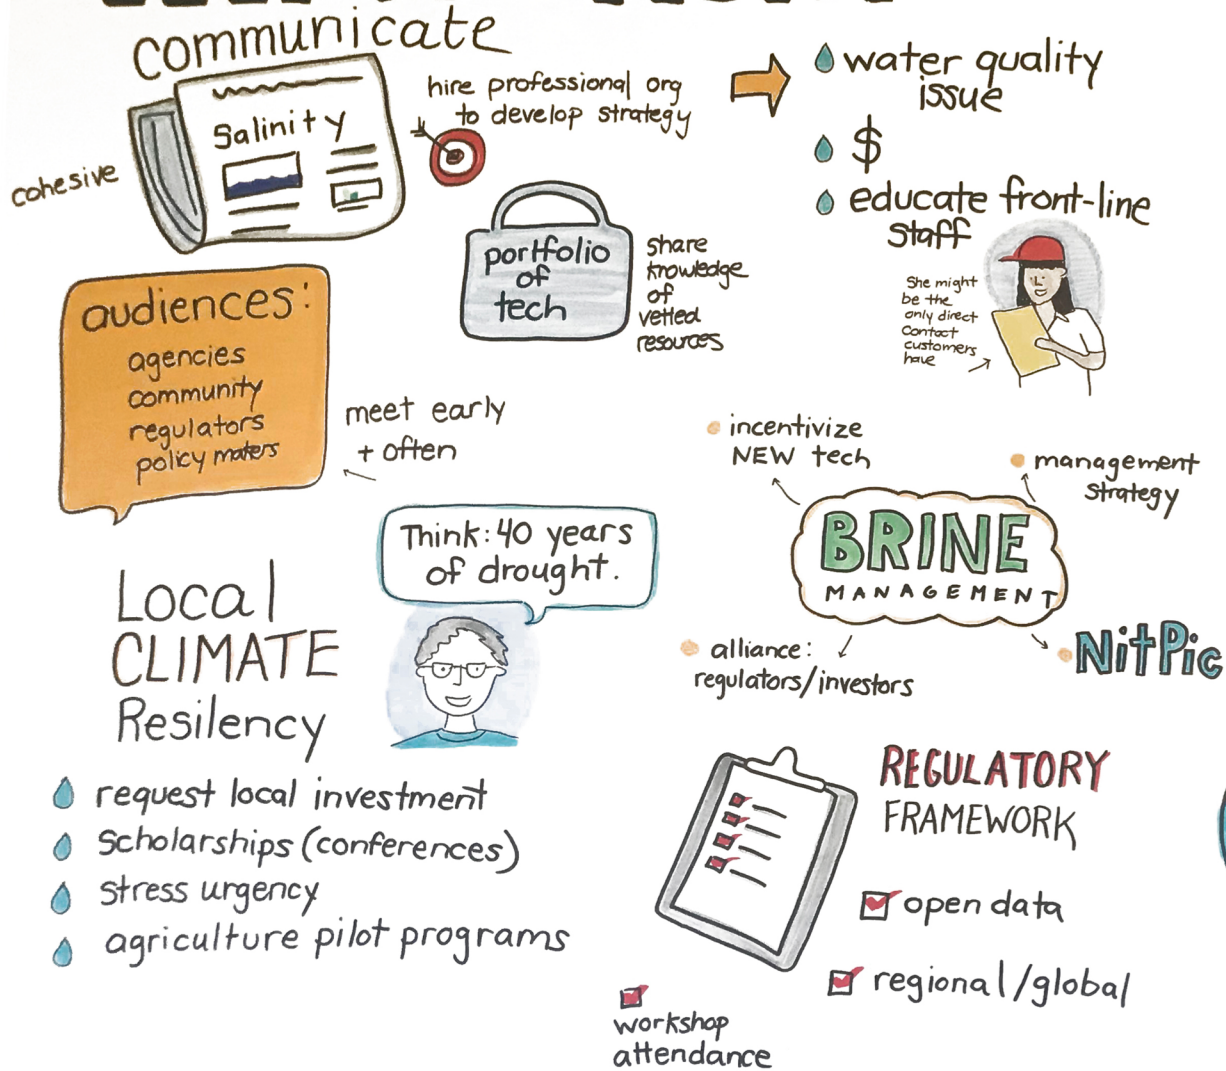 communicate
cohesive
Salinity
hire professional org
to develop strategy
water quality
issue
$
educate front-line
staff
She might
be the
only direct
contact
customers
have
portfolio
of
tech
share
knowledge
of
vetted
resources
audiences:
agencies
community
regulators
policy maters
meet early
+ often
Think: 40 years
of drought.
Local
CLIMATE
Resilency
request local investment
Scholarships (conferences)
stress urgency
agriculture pilot programs
incentivize
NEW tech
management
strategy
BRINE
MANAGEMENT
alliance:
regulators/investors
NitPic
REGULATORY
FRAMEWORK
open data
regional/global
workshop
attendance